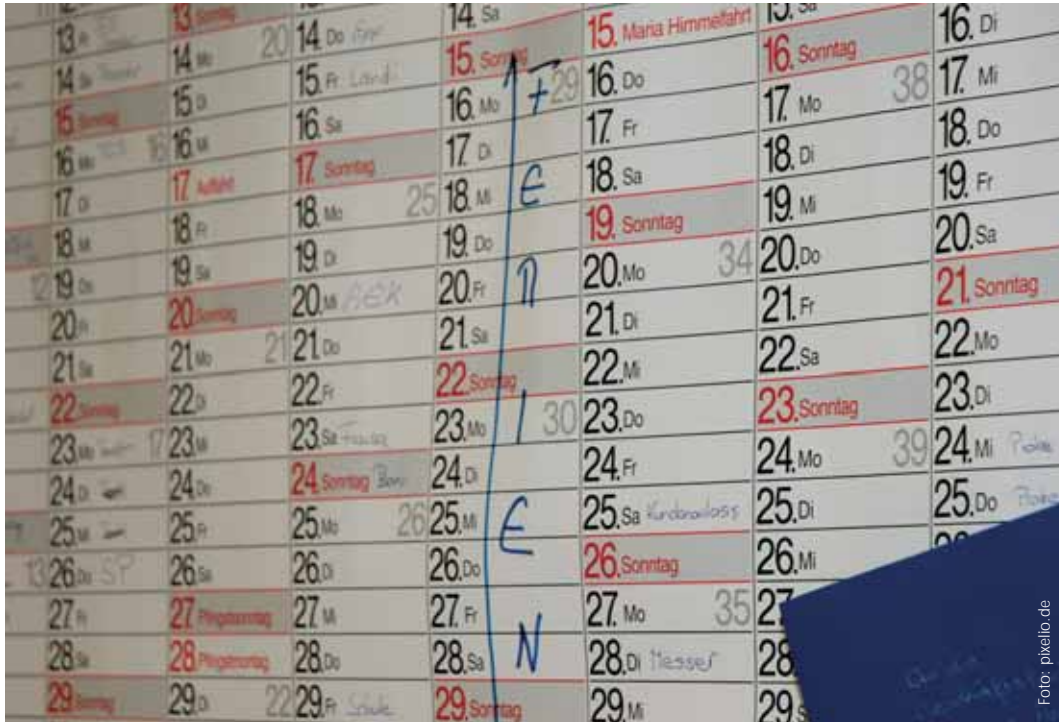 12
13
13. Fr
14. Sa
15. Sonntag
16. Mo 16
17. Di
18. Mi
19. Do
20. Fr
21. Sa
22. Sonntag
23. Mo 17
24. Di
25. Mi
26. Do SP
27. Fr
28. Sa
29. Sonntag
13. Sonntag
14. Mo 20
15. Di
16. Mi
17. Auffahrt
18. Fr
19. Sa
20. Sonntag
21. Mo 21
22. Di
23. Mi
24. Do
25. Fr
26. Sa
27. Pfingstsonntag
28. Pfingstmontag
29. Di 22
14. Do
15. Fr Landi
16. Sa
17. Sonntag
18. Mo 25
19. Di
20. Mi AEK
21. Do
22. Fr
23. Sa
24. Sonntag
25. Mo 26
26. Di
27. Mi
28. Do
29. Fr
14. Sa
15. Sonntag
16. Mo 29
17. Di
18. Mi
19. Do
20. Fr
21. Sa
22. Sonntag
23. Mo 30
24. Di
25. Mi
26. Do
27. Fr
28. Sa
29. Sonntag
FERIEN
15. Maria Himmelfahrt
16. Do
17. Fr
18. Sa
19. Sonntag
20. Mo 34
21. Di
22. Mi
23. Do
24. Fr
25. Sa Kundenanlass
26. Sonntag
27. Mo 35
28. Di Messer
29. Mi
15. Sa
16. Sonntag
17. Mo 38
18. Di
19. Mi
20. Do
21. Fr
22. Sa
23. Sonntag
24. Mo 39
25. Di
26. Mi
27
28
29
16. Di
17. Mi
18. Do
19. Fr
20. Sa
21. Sonntag
22. Mo
23. Di
24. Mi
25. Do
Foto: pixelio.de